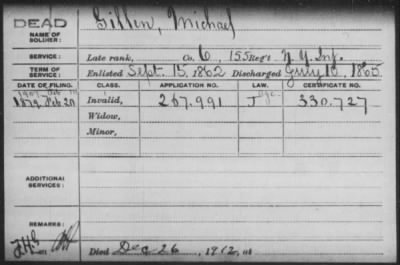 DEAD
NAME OF SOLDIER:
Gillen, Michael
SERVICE:
Late rank, Co. G, 155 Reg't N.Y. Inf.
TERM OF SERVICE:
Enlisted Sept. 15, 1862 Discharged July 15, 1865
DATE OF FILING. CLASS. APPLICATION NO. LAW. CERTIFICATE NO.
1907
1879 Feb. 20 Invalid, 267.991 330.727
Widow,
Minor,
ADDITIONAL SERVICES:
REMARKS:
Died Dec 26, 1912, at